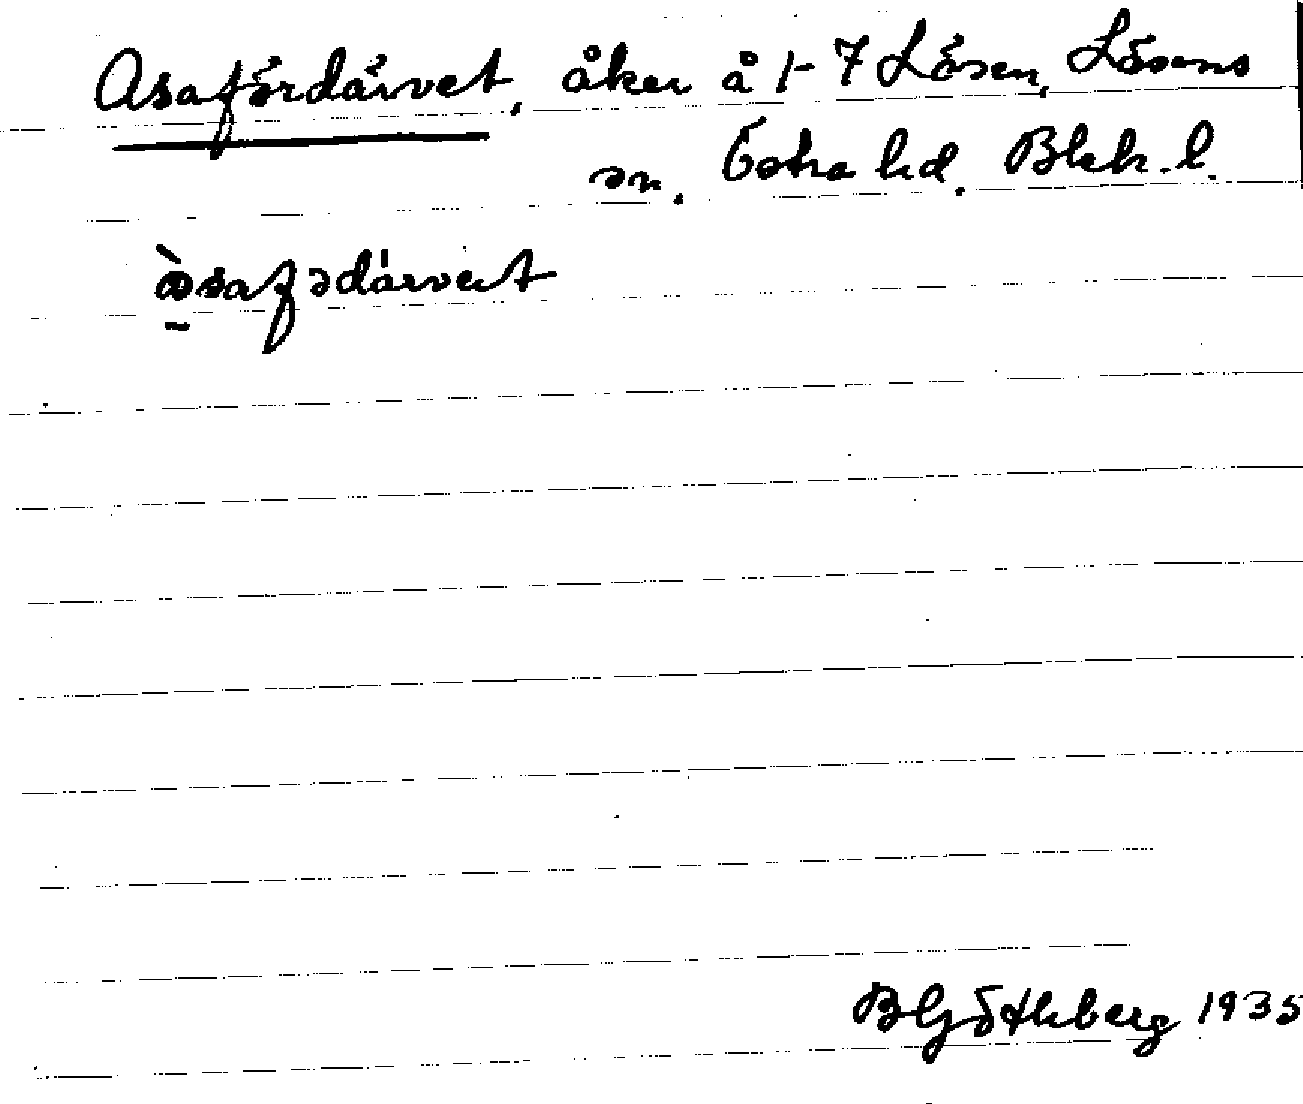 Asafördärvet, åker å 1-7 Lösen, Lösens
sn. Östra hd. Blek. l.
àsafədärvet
B Göthberg 1935